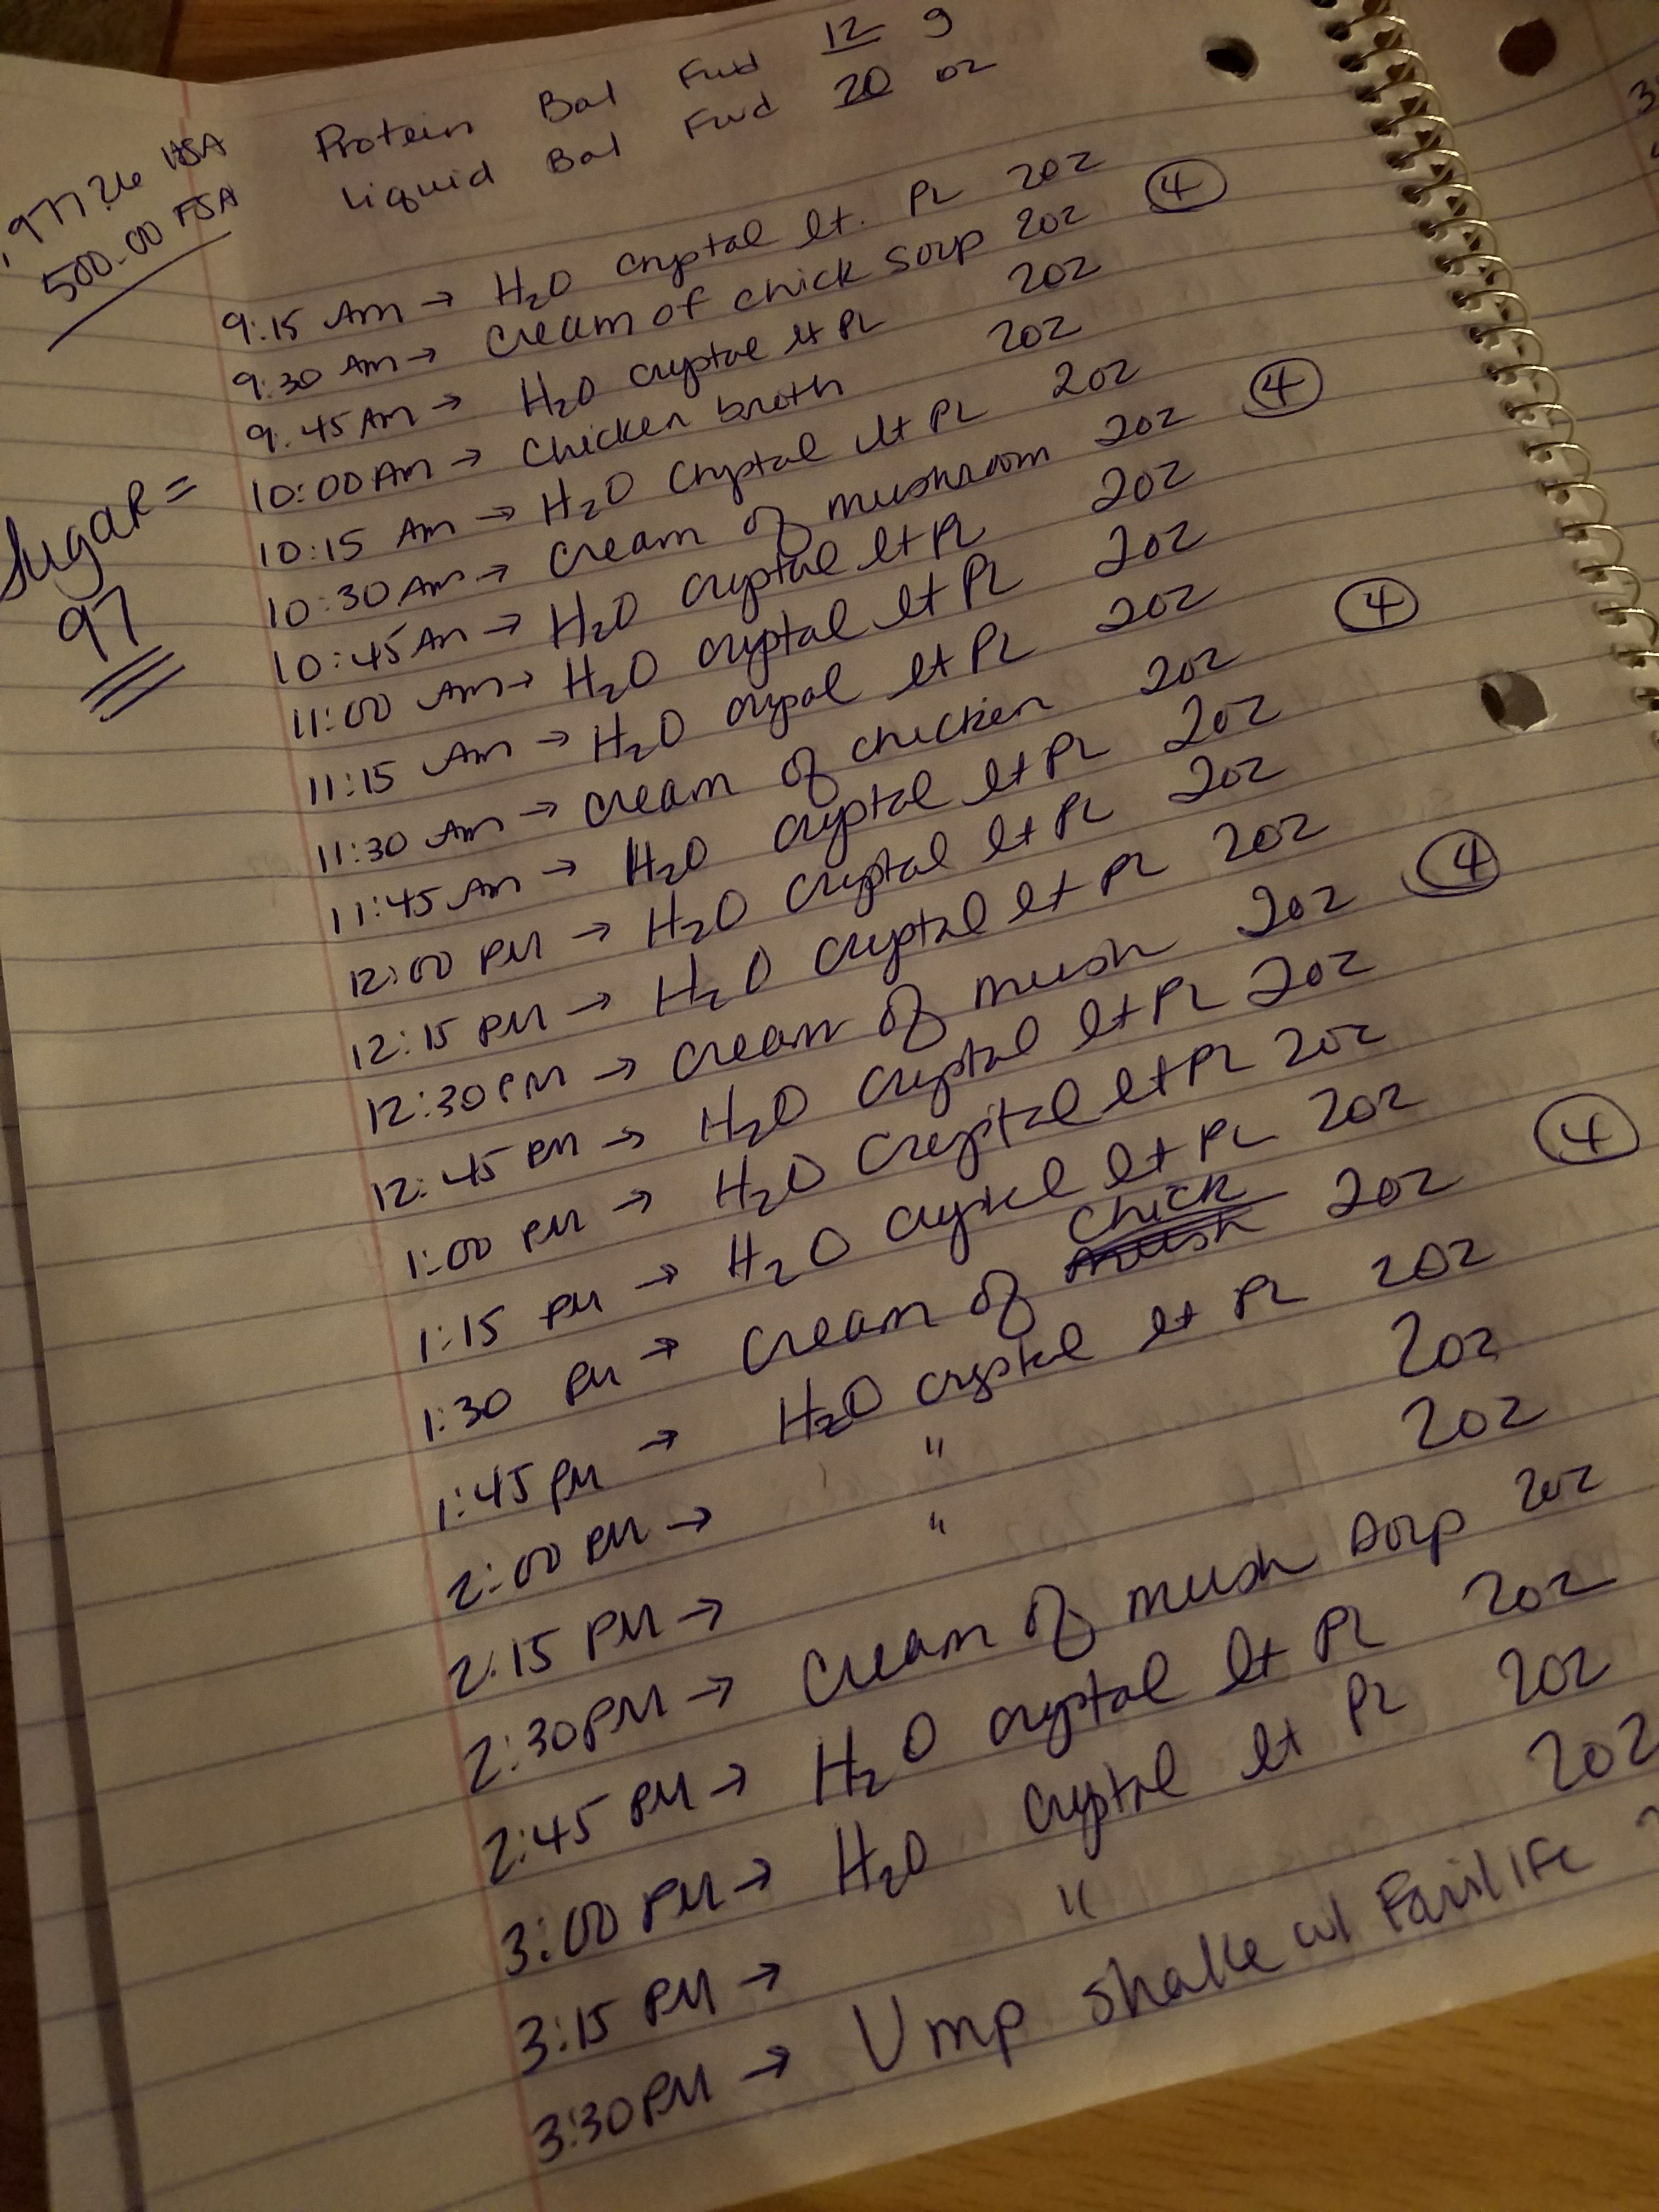 Protein Bal Fwd 12 g
Liquid Bal Fwd 20 oz
977.26 HSA
500.00 FSA
9:15 Am → H2O cryptal lt. PL 2oz
9:30 Am → Cream of chick soup 2oz ④
9:45 Am → H2O cryptal lt PL 2oz
10:00 Am → Chicken broth 2oz
10:15 Am → H2O Cryptal lt PL 2oz
10:30 Am → Cream of mushroom 2oz ④
10:45 Am → H2O cryptal lt PL 2oz
11:00 Am → H2O cryptal lt PL 2oz
11:15 Am → H2O crypal lt PL 2oz
11:30 Am → cream of chicken 2oz ④
11:45 Am → H2O cryptal lt PL 2oz
12:00 PM → H2O cryptal lt PL 2oz
12:15 PM → H2O cryptal lt PL 2oz
12:30 PM → cream of mush 2oz ④
12:45 PM → H2O cryptal lt PL 2oz
1:00 PM → H2O cryptal lt PL 2oz
1:15 PM → H2O cryptal lt PL 2oz
1:30 PM → cream of mush chick 2oz ④
1:45 PM → H2O cryptal lt PL 2oz
2:00 PM → " 2oz
2:15 PM → " 2oz
2:30 PM → Cream of mush soup 2oz
2:45 PM → H2O cryptal lt PL 2oz
3:00 PM → H2O cryptal lt PL 2oz
3:15 PM → " 2oz
3:30 PM → Ump shake w/ Fairlife
Sugar =
97